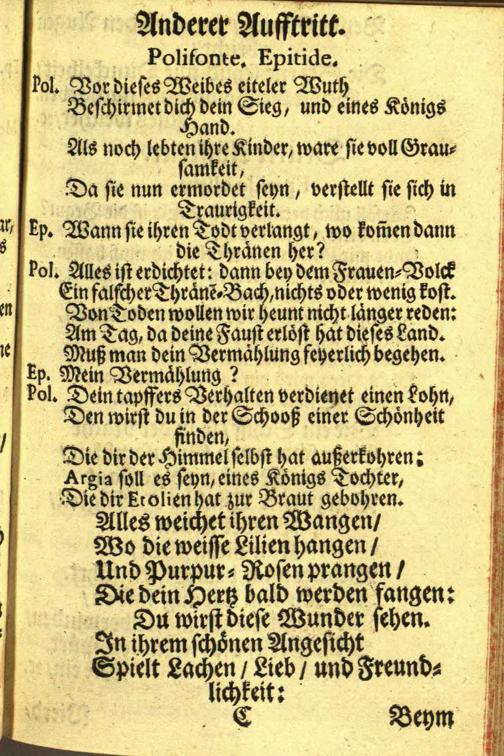 Anderer Aufftritt.
Polifonte. Epitide.
Pol. Vor dieses Weibes eiteler Wuth
Beschirmet dich dein Sieg, und eines Königs
Hand.
Als noch lebten ihre Kinder, ware sie voll Grau-
samkeit,
Da sie nun ermordet seyn, verstellt sie sich in
Traurigkeit.
Ep. Wann sie ihren Todt verlangt, wo kom̃en dann
die Thränen her?
Pol. Alles ist erdichtet: dann bey dem Frauen-Volck
Ein falscher Thränē-Bach, nichts oder wenig kost.
Von Toden wollen wir heunt nicht länger reden:
Am Tag, da deine Faust erlöst hat dieses Land.
Muß man dein Vermählung feyerlich begehen.
Ep. Mein Vermählung ?
Pol. Dein tapffers Verhalten verdienet einen Lohn,
Den wirst du in der Schooß einer Schönheit
finden,
Die dir der Himmel selbst hat außerkohren:
Argia soll es seyn, eines Königs Tochter,
Die dir Etolien hat zur Braut gebohren.
Alles weichet ihren Wangen/
Wo die weisse Lilien hangen /
Und Purpur- Rosen prangen /
Die dein Hertz bald werden fangen:
Du wirst diese Wunder sehen.
In ihrem schönen Angesicht
Spielt Lachen / Lieb / und Freund-
lichkeit:
C Beym